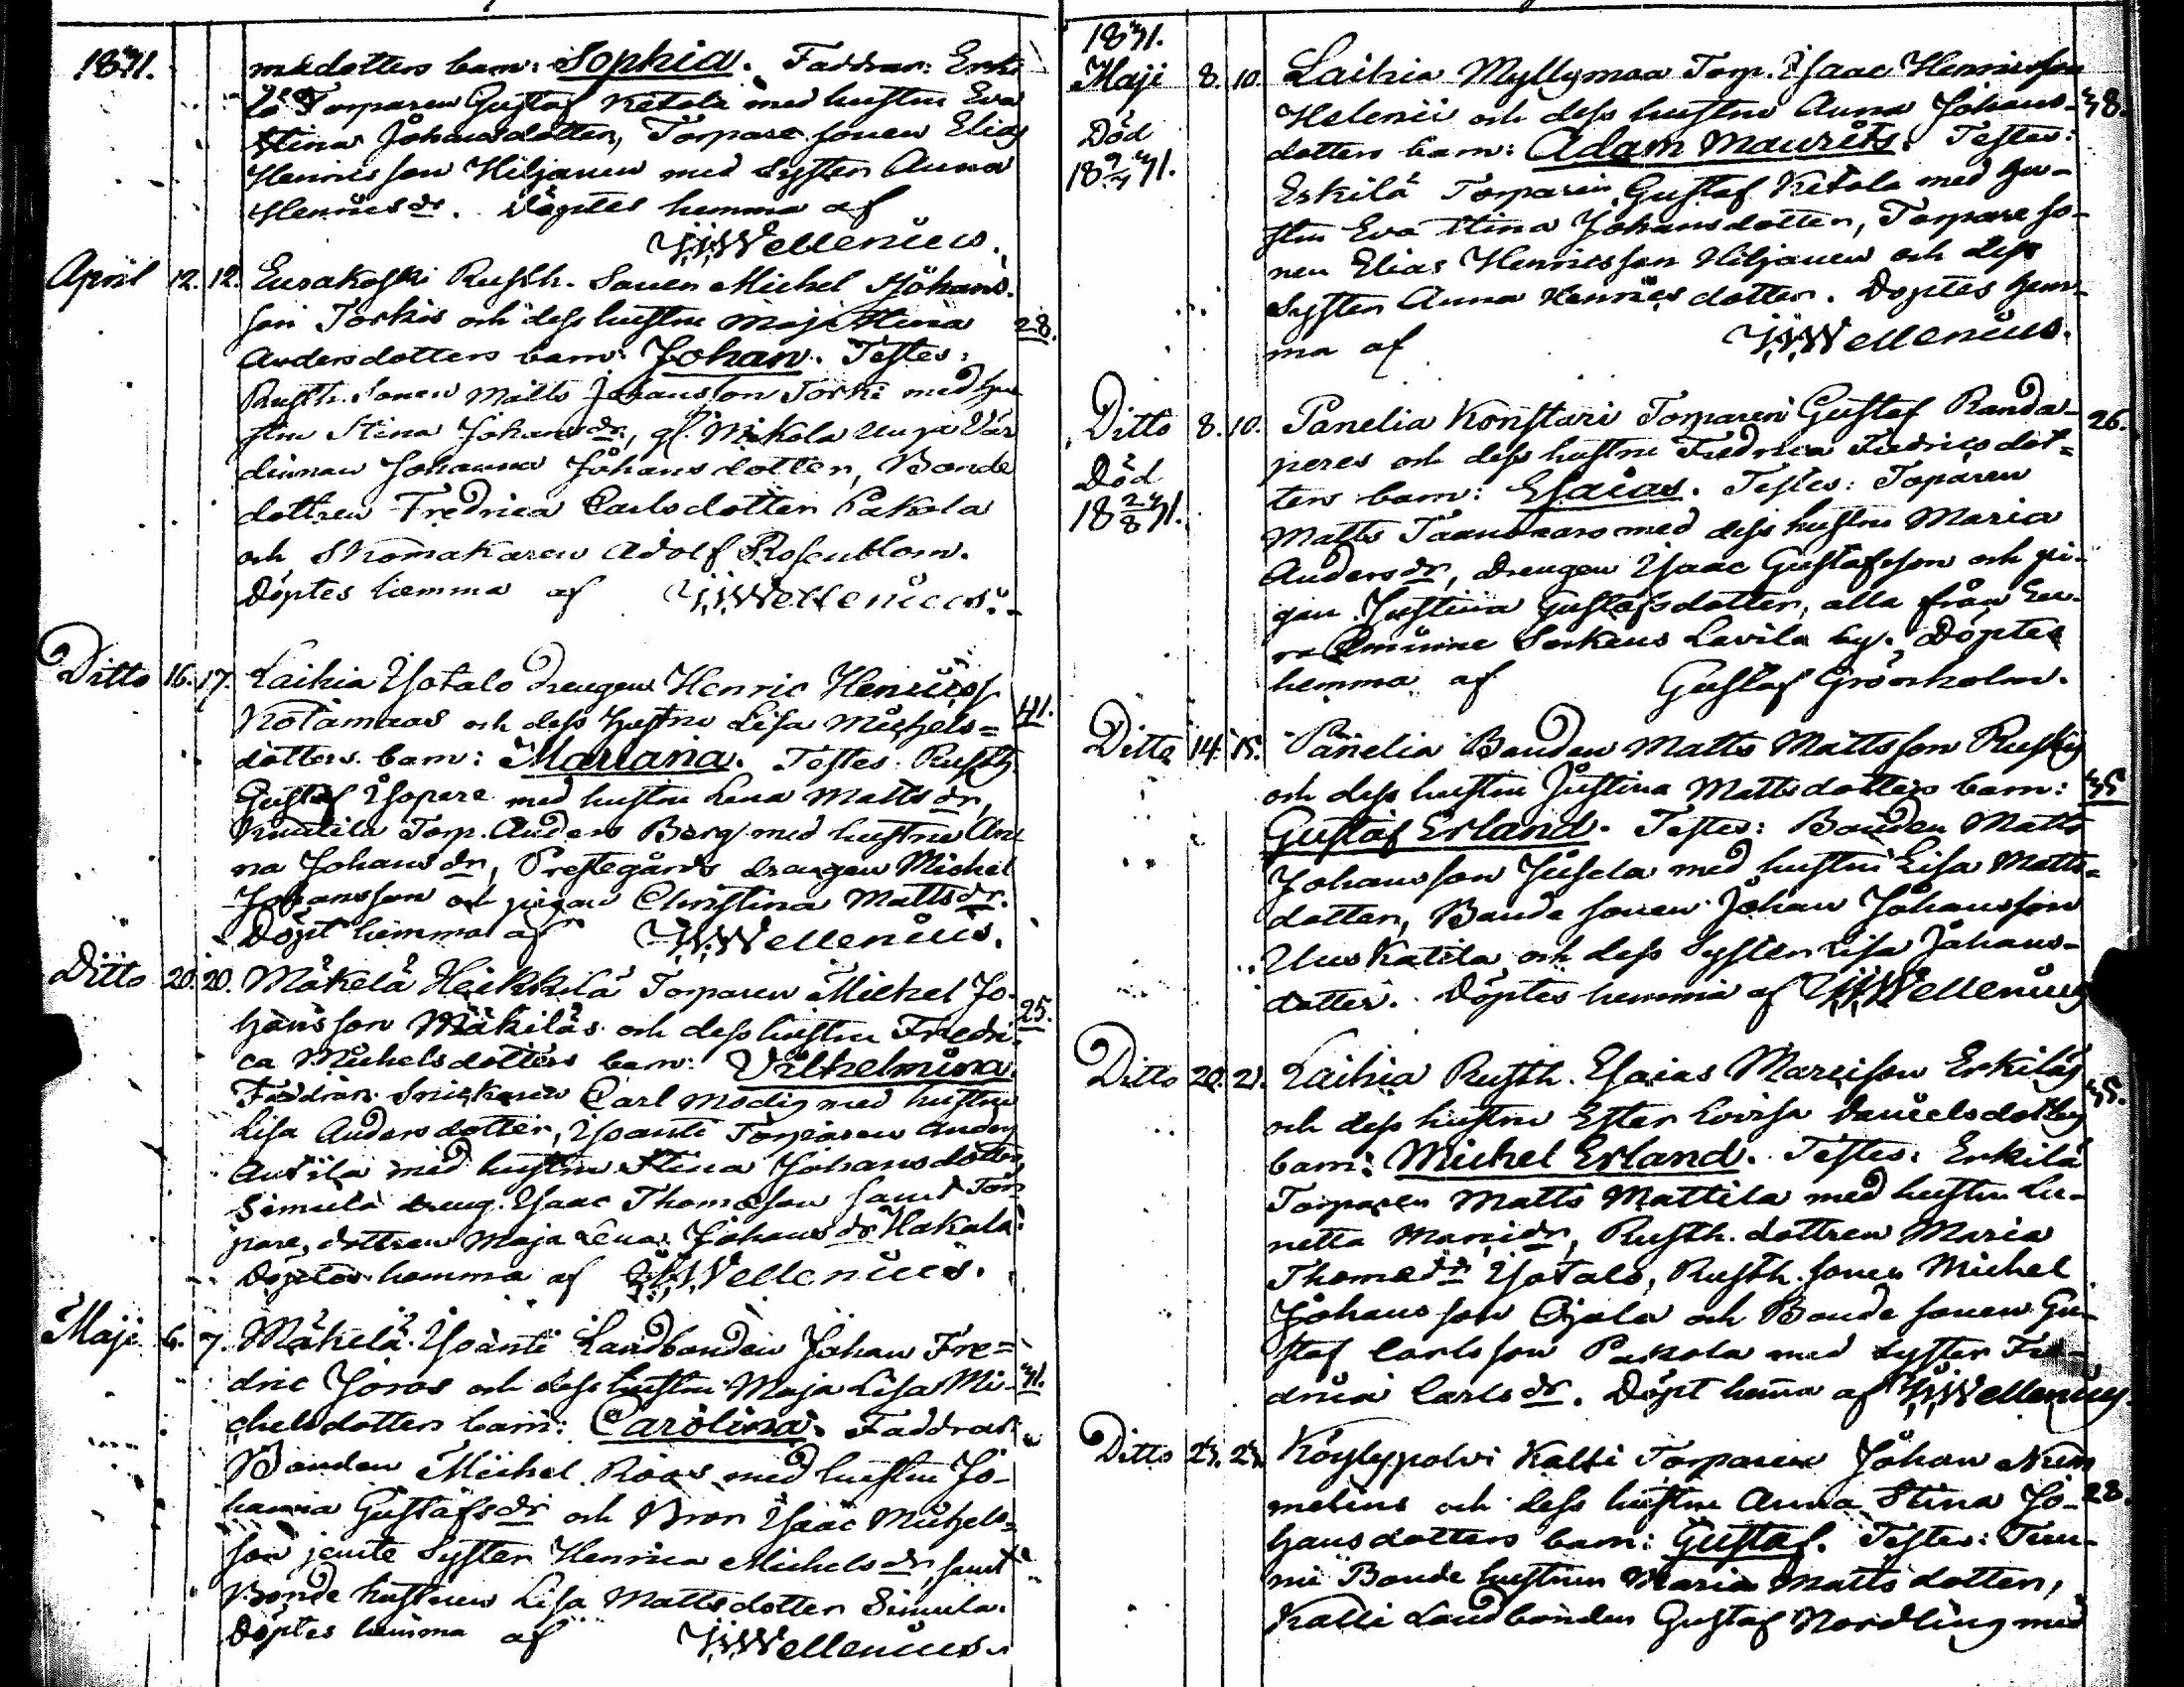 1871.
medotters barn: Sophia. Faddrar: Erki
lä Torparen Gustaf Ketola med hustru Eva
Stina Johansdotter, Torpare sonen Elias
Henricsson Hiljanen med Syster Anna
Henricsdr. Döptes hemma af
Wellenius.
April 12. 12. Eurakoski Rusth. Sonen Michel Johans-
son Torkis och dess hustru Maja Stina 28.
Andersdotters barn: Johan. Testes:
Rusth. Sonen Matts Johansson Torki med hu
stru Stina Johansdr, gl. Mikola unga Vär
dinnan Johanna Johansdotter, Bonde
dottren Fredrica Carlsdotter Pakola
och Skomakaren Adolf Rosenblom.
Döptes hemma af Wellenius.
Ditto 16. 17. Laihia Yotalo drengen Henric Henricss.
Kotamaas och dess hustru Lisa Michels= 41.
dotters barn: Mariana. Testes: Rusth.
Gustaf Ysopere med hustru Lena Mattsdr,
Knutila Torp. Anders Berg med hustru An
na Johansdr, Prestegårds drengen Michel
Johansson och pigan Christina Mattsdr.
Döpt hemma af Wellenius.
Ditto 20. 20. Mäkelä Heikkilä Torparen Michel Jo-
hansson Mäkiläs och dess hustru Fredri- 25.
ca Michelsdotters barn: Vilhelmina.
Faddrar: Snickaren Carl Modig med hustru
Lisa Andersdotter, Yoanti Torparen Anders
Antila med hustru Stina Johansdotter,
Simula dreng. Isaac Thomasson samt Tor
pare, dottren Maja Lena Johansdr Hakala.
Döptes hemma af Wellenius.
Maji 6. 7. Mäkelä Yoanti Landbonden Johan Fre=
dric Joras och dess hustru Maja Lisa Mi- 41.
chelsdotters barn: Carolina. Faddrar:
Bonden Michel Roos med hustru Jo-
hanna Gustafsdr och Bror Isaac Michels=
son jemte Syster Henrica Michelsdr, samt
Bonde hustrun Lisa Mattsdotter Simula.
Döptes hemma af Wellenius.
1871.
Maji 8. 10. Laihia Myllymaa Torp. Isaac Henricsson
Helenii och dess hustru Anna Johans- 48.
Död
dotters barn: Adam Maurits. Testes:
18 9/7 71.
Erkilä Torparen Gustaf Ketola med hu-
stru Eva Stina Johansdotter, Torpare so-
nen Elias Henricsson Hiljanen och dess
Syster Anna Henricsdotter. Döptes hem-
ma af Wellenius.
Ditto 8. 10. Panelia Konstari Torparen Gustaf Randa- 26.
peres och dess hustru Fredrica Fredricsdot=
Död
ters barn: Esaias. Testes: Toparen
18 2/8 71.
Matts med dess hustru Maria
Andersdr, drengen Isaac Gustafsson och pi-
gan Justina Gustafsdotter, alla från Eu-
ra Sorkens Lavila by. Döptes
hemma af Gustaf Grönholm.
Ditto 14. 15. Panelia Bonden Matts Mattsson Rusky
och dess hustru Justina Mattsdotters barn: 35
Gustaf Erland. Testes: Bonden Matts
Johansson Jusela med hustru Lisa Matts=
dotter, Bonde sonen Johan Johansson
Uus Katila och dess Syster Lisa Johans-
dotter. Döptes hemma af Wellenius
Ditto 20. 21. Laihia Rusth. Esaias Marcisson Erkiläs
och dess hustru Ester Lovisa Danielsdotters 35.
barn: Michel Erland. Testes: Erkilä
Torparen Matts Mattila med hustru Le-
netta Marcidr, Rusth. dottren Maria
Thomædr Yotalo, Rusth. Sonen Michel
Johansson Ojala och Bonde sonen Gu-
staf Carlsson Pakola med Syster Fre-
drica Carlsdr. Döpt hemma af Wellenius.
Ditto 23. 23. Köylypolvi Kalli Torparen Johan Num
melins och dess hustru Anna Stina Jo- 28.
hansdotters barn: Gustaf. Testes: Tuu-
ni Bonde hustrun Maria Mattsdotter,
Kalli Landbonden Gustaf Nordling med